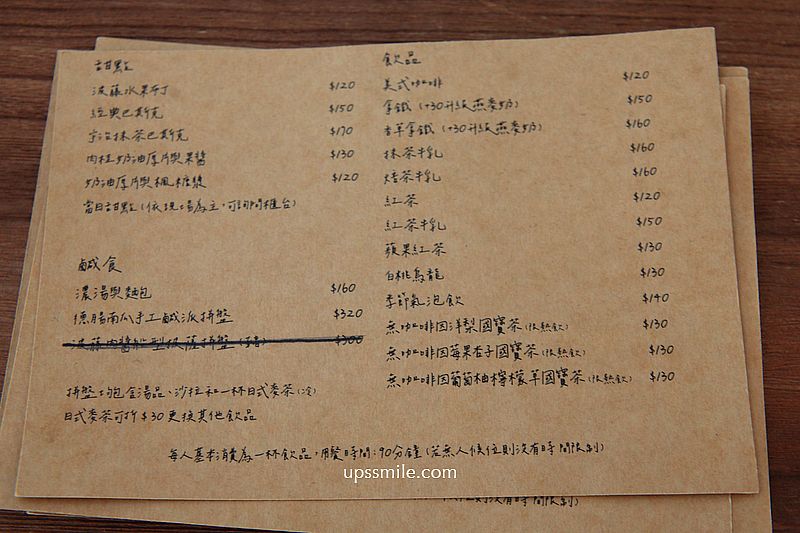 甜點
波蘿水果布丁 $120
經典巴斯克 $150
宇治抹茶巴斯克 $170
肉桂奶油厚片與果醬 $130
奶油厚片與楓糖漿 $120
當日甜點(依現場為主,可詢問櫃台)
鹹食
濃湯與麵包 $160
德腸南瓜手工鹹派拼盤 $320
波蘿肉醬船型披薩拼盤 $300
拼盤均包含湯品、沙拉和一杯日式麥茶(冷)
日式麥茶可折$30更換其他飲品
飲品
美式咖啡 $120
拿鐵(+30升級燕麥奶) $150
香草拿鐵(+30升級燕麥奶) $160
抹茶牛乳 $160
焙茶牛乳 $160
紅茶 $120
紅茶牛乳 $150
蘋果紅茶 $130
白桃烏龍 $130
季節氣泡飲 $140
無咖啡因洋梨國寶茶(限熱飲) $130
無咖啡因莓果杏子國寶茶(限熱飲) $130
無咖啡因葡萄柚檸檬草國寶茶(限熱飲) $130
每人基本消費為一杯飲品,用餐時間:90分鐘(若無人候位則沒有時間限制)
upssmile.com
則沒有時間限制)